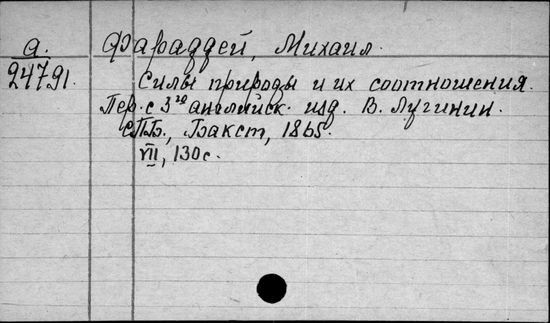 а. Фараддей, Михаил.
24791. Силы природы и их соотношения.
Пер. с 3го английск. изд. В. Лугинин.
СПБ., Бакст, 1865.
VII, 130 с.